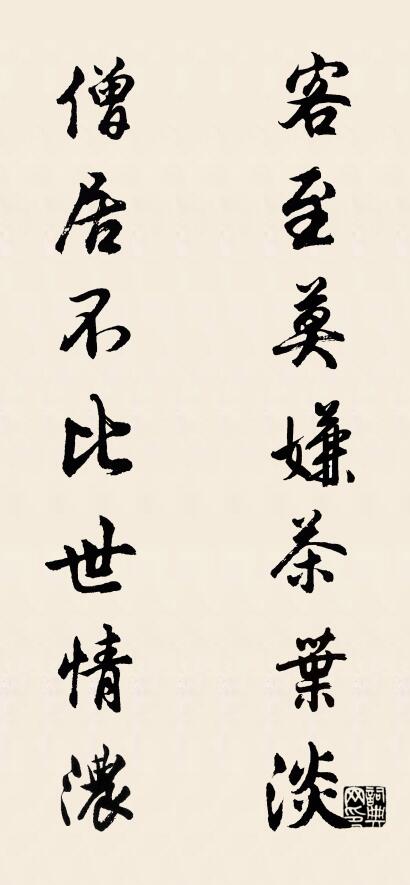 客至莫嫌茶葉淡
僧居不比世情濃
詞典網印